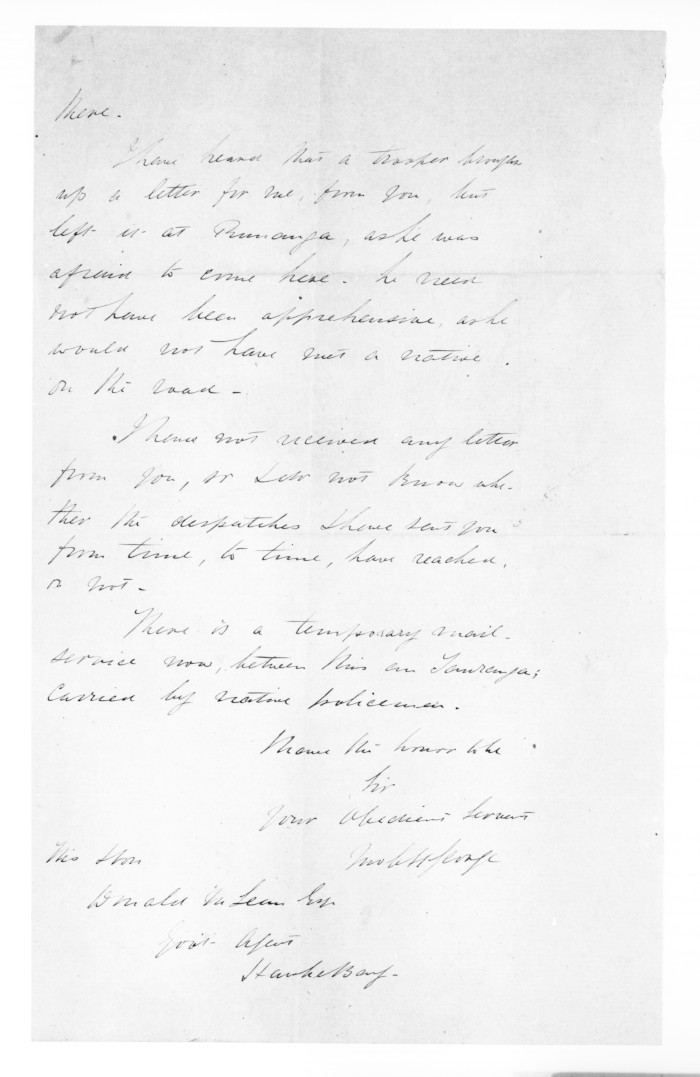 there.
I have heard that a trooper brought
up a letter for me, from you, but
left it at Runanga, as he was
afraid to come here. he need
not have been apprehensive, as he
would not have met a native
on the road -
I have not received any letter
from you, or do not know whe-
ther the despatches I have sent you
from time, to time, have reached,
or not -
There is a temporary mail-
service now, between this an Tauranga;
Carried by native policemen.
I have the honor to be
Sir
Your Obedient Servant
His Hon
Donald McLean Esq
Govt Agent
Hawke Bay -